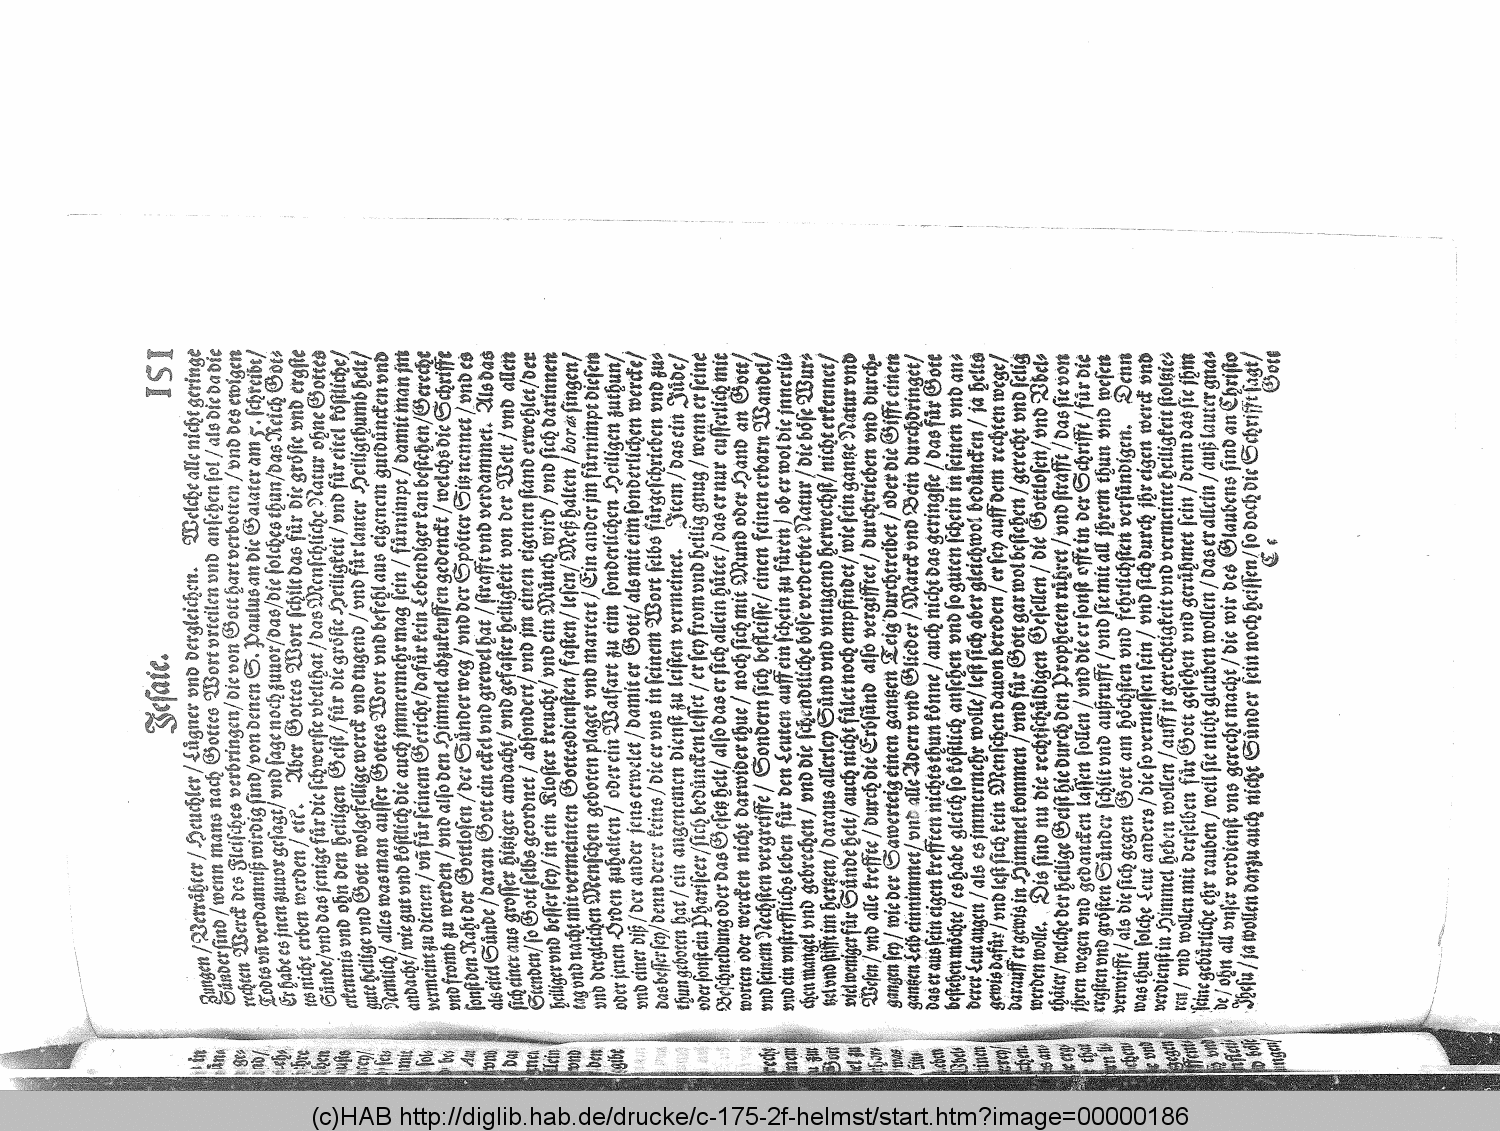 Jesaie. 151
Zungen / Verrähter / Heuchler / Lügner vnd dergleichen. Welche alle nicht geringe
Sünder sind / wenn mans nach Gottes Wort vrteilen vnd ansehen sol / als die da die
rechten Werck des Fleisches verbringen / die von Gott hart verbotten / vnd des ewigen
Todts vñ verdamniß wirdig sind / von denen S. Paulus an die Galater am 5. schreibt /
Er habe es jnen zuuor gesagt / vnd sage noch zuuor / das / die solches thun / das Reich Got⸗
tes nicht erben werden / etc. Aber Gottes Wort schilt das für die gröste vnd ergste
Sünde / vnd das jenige für die schwerste vbelthat / das Menschliche Natur ohne Gottes
erkentnis vnd ohn den heiligen Geist / für die gröste Heiligkeit / vnd für eitel köstliche /
gute heilige vnd Gott wolgefellige werck vnd tugend / vnd für lauter Heiligthumb helt /
Nemlich / alles was man ausser Gottes Wort vnd befehl aus eigenem gutdüncken vnd
andacht / wie gut vnd köstlich die auch jmmermehr mag sein / fürnimpt / damit man jm
vermeint zu dienen / vñ für seinem Gericht / dafür kein Lebendiger kan bestehen / Gerecht
vnd fromb zu werden / vnd also den Himmel abzukeuffen gedenckt / welchs die Schrifft
sonst den Raht der Gottlosen / der Sünder weg / vnd der Spötter Sitz nennet / vnd es
als eitel Sünde / daran Gott ein eckel vnd grewel hat / strafft vnd verdammet. Als das
sich einer aus grosser hitziger andacht / vnd gefaster heiligkeit von der Welt / vnd allen
Stenden / so Gott selbs geordnet / absondert / vnd jm einen eigenen stand erwehlet / der
heiliger vnd besser sey / in ein Kloster kreucht / vnd ein Münch wird / vnd sich darinnen
tag vnd nacht mit vermeinten Gottesdiensten / fasten / lesen / Meß halten / horas singen /
vnd dergleichen Menschen geboten plaget vnd martert / Ein ander jm fürnimpt diesen
oder jenen Orden zuhalten / oder ein Walfart zu eim sonderlichen Heiligen zuthun /
vnd einer diß / der ander jens erwelet / damit er Gott / als mit eim sonderlichen wercke /
das besser sey / denn derer keins / die er vns in seinem Wort selbs fürgeschrieben vnd zu⸗
thun geboten hat / ein angenemen dienst zu leisten vermeinet. Item / das ein Jüde /
oder sonst ein Phariseer / sich bedüncken lesset / er sey from vnd heilig gnug / wenn er seine
Beschneidung oder das Gesetz helt / also das er sich allein hütet / das er nur eusserlich mit
worten oder wercken nicht darwider thue / noch sich mit Mund oder Hand an Gott /
vnd seinem Nechsten vergreiffe / Sondern sich befleisse / einen feinen erbarn Wandel /
vnd ein vnstrefflichs leben für den Leuten auff ein schein zu füren / ob er wol die jnnerli⸗
chen mangel vnd gebrechen / vnd die schendtliche böse verderbte Natur / die böse Wur⸗
tzel vnd stifft im hertzen / daraus allerley Sünd vnd vntugend herwechst / nicht erkennet /
viel weniger für Sünde helt / auch nicht fület noch empfindet / wie sein gantze Natur vnd
Wesen / vnd alle kreffte / durch die Erbsünd also vergifftet / durchtrieben vnd durch⸗
gangen sey / wie der Sawerteig einen gantzen Teig durchtreibet / oder die Gifft einen
gantzen Leib einnimmet / vnd alle Adern vnd Glieder / Marck vnd Bein durchdringet /
das er aus sein eigen krefften nichts thun könne / auch nicht das geringste / das für Gott
bestehen möchte / es habe gleich so köstlich ansehen vnd so guten schein in seinen vnd an⸗
derer Leut augen / als es jmmermehr wolle / lest sich aber gleichwol bedüncken / ja helts
gewis dafür / vnd lest sich kein Menschen dauon bereden / er sey auff dem rechten wege /
darauff er gewis in Himmel kommen / vnd für Gott gar wol bestehen / gerecht vnd selig
werden wolle. Dis sind nu die rechtschüldigen Gesellen / die Gottlosen / vnd Vbel⸗
thäter / welche der heilige Geist hie durch den Propheten rühret / vnd strafft / das sie von
jhren wegen vnd gedancken lassen sollen / vnd die er sonst offt in der Schrifft / für die
ergsten vnd grösten Sünder schilt vnd außrufft / vnd sie mit all jhrem thun vnd wesen
verwirfft / als die sich gegen Gott am höchsten vnd fehrlichsten versündigen. Denn
was thun solche Leut anders / die so vermessen sein / vnd sich durch jhr eigen werck vnd
verdienst in Himmel heben wollen / auff jr gerechtigkeit vnd vermeinte heiligkeit stoltzie⸗
ren / vnd wollen mit derselben für Gott gesehen vnd gerühmet sein / denn das sie jhm
seine gebürliche ehr rauben / weil sie nicht gleuben wollen / das er allein / auß lauter gna⸗
de / ohn all vnser verdienst vns gerecht macht / die wir des Glaubens sind an Christo
Jhesu / ja wollen darzu auch nicht Sünder sein noch heissen / so doch die Schrifft sagt /
C c Gott
(c)HAB http://diglib.hab.de/drucke/c-175-2f-helmst/start.htm?image=00000186